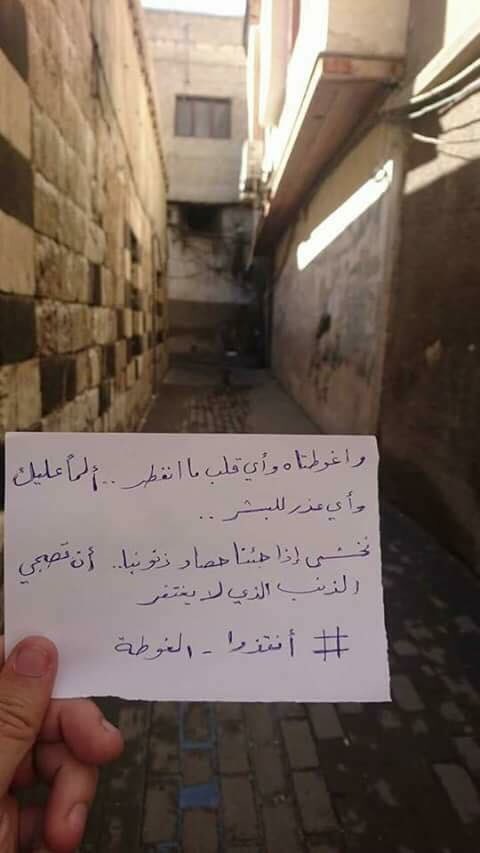 واغوطتاه وأي قلب ما انفطر .. ألماً عليك
وأي عذر للبشر ..
نخشى إذا جئنا حصاد ذنوبنا .. أن تصبحي
الذنب الذي لا يغتفر
# أنقذوا - الغوطة